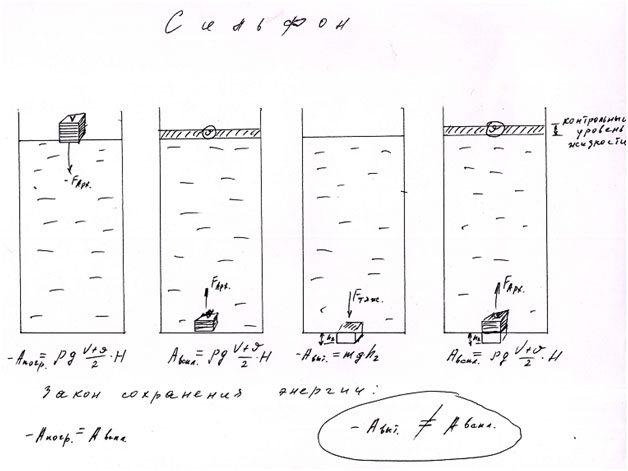 Сильфон
V
ϑ
ϑ
контрольный
уровень
жидкости
-Fарх.
Fарх.
Fтяж.
Fарх.
h₂
h₂
-Aпогр.= ρg V+ϑ/2 · H
Aвспл.= ρg V+ϑ/2 · H
-Aвыт.= mgh₂
Aвспл.= ρg V+ϑ/2 · H
Закон сохранения энергии:
-Aпогр.= Aвспл.
-Aвыт. ≠ Aвспл.